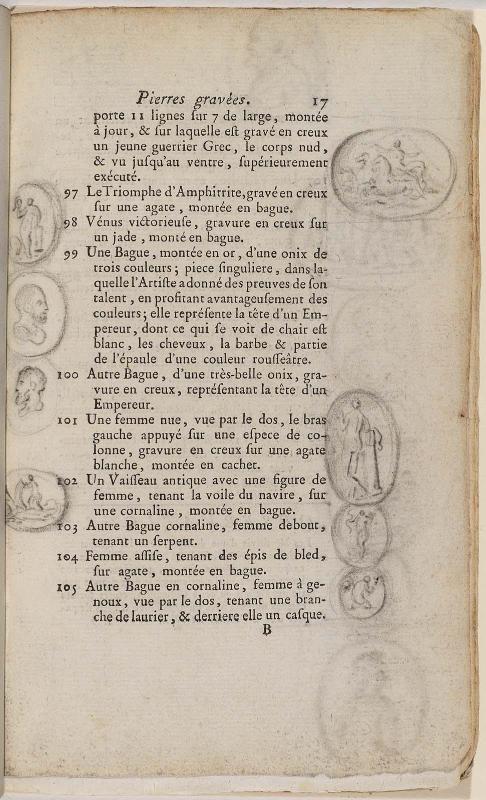 Pierres gravées. 17
porte 11 lignes ſur 7 de large, montée
à jour, & ſur laquelle eſt gravé en creux
un jeune guerrier Grec, le corps nud,
& vu juſqu'au ventre, ſupérieurement
exécuté.
97 Le Triomphe d'Amphitrite, gravé en creux
ſur une agate, montée en bague.
98 Vénus victorieuſe, gravure en creux ſur
un jade, monté en bague.
99 Une Bague, montée en or, d'une onix de
trois couleurs; piece ſinguliere, dans la-
quelle l'Artiſte a donné des preuves de ſon
talent, en profitant avantageuſement des
couleurs; elle repréſente la tête d'un Em-
pereur, dont ce qui ſe voit de chair eſt
blanc, les cheveux, la barbe & partie
de l'épaule d'une couleur rouſſeâtre.
100 Autre Bague, d'une très-belle onix, gra-
vure en creux, repréſentant la tête d'un
Empereur.
101 Une femme nue, vue par le dos, le bras
gauche appuyé ſur une eſpece de co-
lonne, gravure en creux ſur une agate
blanche, montée en cachet.
102 Un Vaiſſeau antique avec une figure de
femme, tenant la voile du navire, ſur
une cornaline, montée en bague.
103 Autre Bague cornaline, femme debout,
tenant un ſerpent.
104 Femme aſſiſe, tenant des épis de bled,
ſur agate, montée en bague.
105 Autre Bague en cornaline, femme à ge-
noux, vue par le dos, tenant une bran-
che de laurier, & derriere elle un caſque.
B